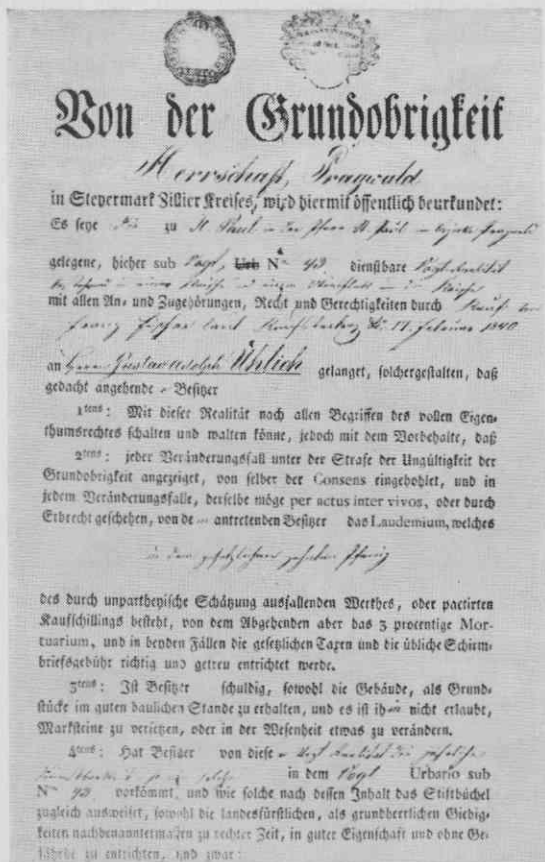 Von der Grundobrigkeit
Herrschaft, Pragwald
in Steyermark Zillier Kreises, wird hiermit öffentlich beurkundet:
Es seye die zu St. Paul in der Pfarr St. Paul im bezirke Pragwald
gelegene, hieher sub Vogt, Urb N 42 dienstbare Vogt Realität
mit allen An- und Zugehörungen, Recht und Gerechtigkeiten durch Kauf von
Franz laut 17. Februar 1840
an Herrn Gustav Adolph Uhlich gelanget, solchergestalten, daß
gedacht angehende Besitzer
1tens: Mit dieser Realität nach allen Begriffen des vollen Eigen-
thumsrechtes schalten und walten könne, jedoch mit dem Vorbehalte, daß
2tens: jeder Veränderungsfall unter der Strafe der Ungültigkeit der
Grundobrigkeit angezeiget, von selber der Consens eingehohlet, und in
jedem Veränderungsfalle, derselbe möge per actus inter vivos, oder durch
Erbrecht geschehen, von de antretenden Besitzer das Laudemium, welches
in dem gesetzlichen zehnten Pfenig
des durch unpartheyische Schätzung ausfallenden Werthes, oder pactirten
Kaufschillings besteht, von dem Abgehenden aber das 3 procentige Mor-
tuarium, und in beyden Fällen die gesetzlichen Taxen und die übliche Schirm-
briefsgebühr richtig und getreu entrichtet werde.
3tens: Ist Besitzer schuldig, sowohl die Gebäude, als Grund-
stücke im guten baulichen Stande zu erhalten, und es ist ihm nicht erlaubt,
Marksteine zu versetzen, oder in der Wesenheit etwas zu verändern.
4tens: Hat Besitzer von diese Vogt Realität die jährliche
in dem Vogt Urbario sub
N 42 vorkömmt, und wie solche nach dessen Inhalt das Stiftbüchel
zugleich ausweiset, sowohl die landesfürstlichen, als grundherrlichen Giebig-
keiten nachbenanntermaßen zu rechter Zeit, in guter Eigenschaft und ohne Ge-
fährde zu entrichten, und zwar: